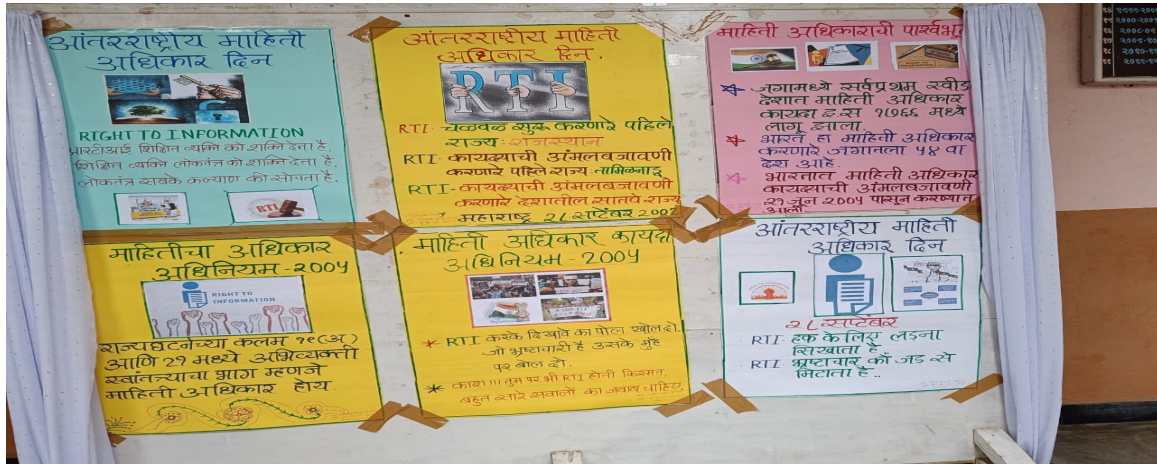 आंतरराष्ट्रीय माहिती
अधिकार दिन
RIGHT TO INFORMATION
आरटीआई शिक्षित व्यक्ति को शक्ति देता है.
शिक्षित व्यक्ति लोकतंत्र को शक्ति देता है.
लोकतंत्र सबके कल्याण की सोचता है.
RTI
आंतरराष्ट्रीय माहिती
अधिकार दिन.
RTI
RTI- चळवळ सुरू करणारे पहिले
राज्य: राजस्थान
RTI- कायद्याची अंमलबजावणी
करणारे पहिले राज्य: तामिळनाडू
RTI- कायद्याची अंमलबजावणी
करणारे देशातील सातवे राज्य
महाराष्ट्र 28 सप्टेंबर 2002
माहिती अधिकाराची
जगामध्ये सर्वप्रथम स्वीड
देशात माहिती अधिकार
कायदा इ.स १७६६ मध्ये
लागू झाला.
भारत हा माहिती अधिकार
करणारे जगातला ५४ वा
देश आहे.
भारतात माहिती अधिकार
कायद्याची अंमलबजावणी
२१ जून २००५ पासून करण्यात
आली.
माहितीचा अधिकार
अधिनियम - 2005
RIGHT TO
INFORMATION
राज्यघटनेच्या कलम १९(अ)
आणि २१ मध्ये अभिव्यक्ती
स्वातंत्र्याचा भाग म्हणजे
माहिती अधिकार होय.
माहिती अधिकार कायदा
अधिनियम - 2005
* RTI करके दिखावे का पोल खोल दो.
जो भ्रष्टाचारी है उसके मुँह
पर बोल दो.
* काश!!! तुम पर भी RTI होती किस्मत,
बहुत सारे सवालों का जवाब चाहिए.
आंतरराष्ट्रीय माहिती
अधिकार दिन
२८ सप्टेंबर
RTI- हक के लिए लड़ना
सिखाता है
RTI- भ्रष्टाचार को जड़ से
मिटाता है..